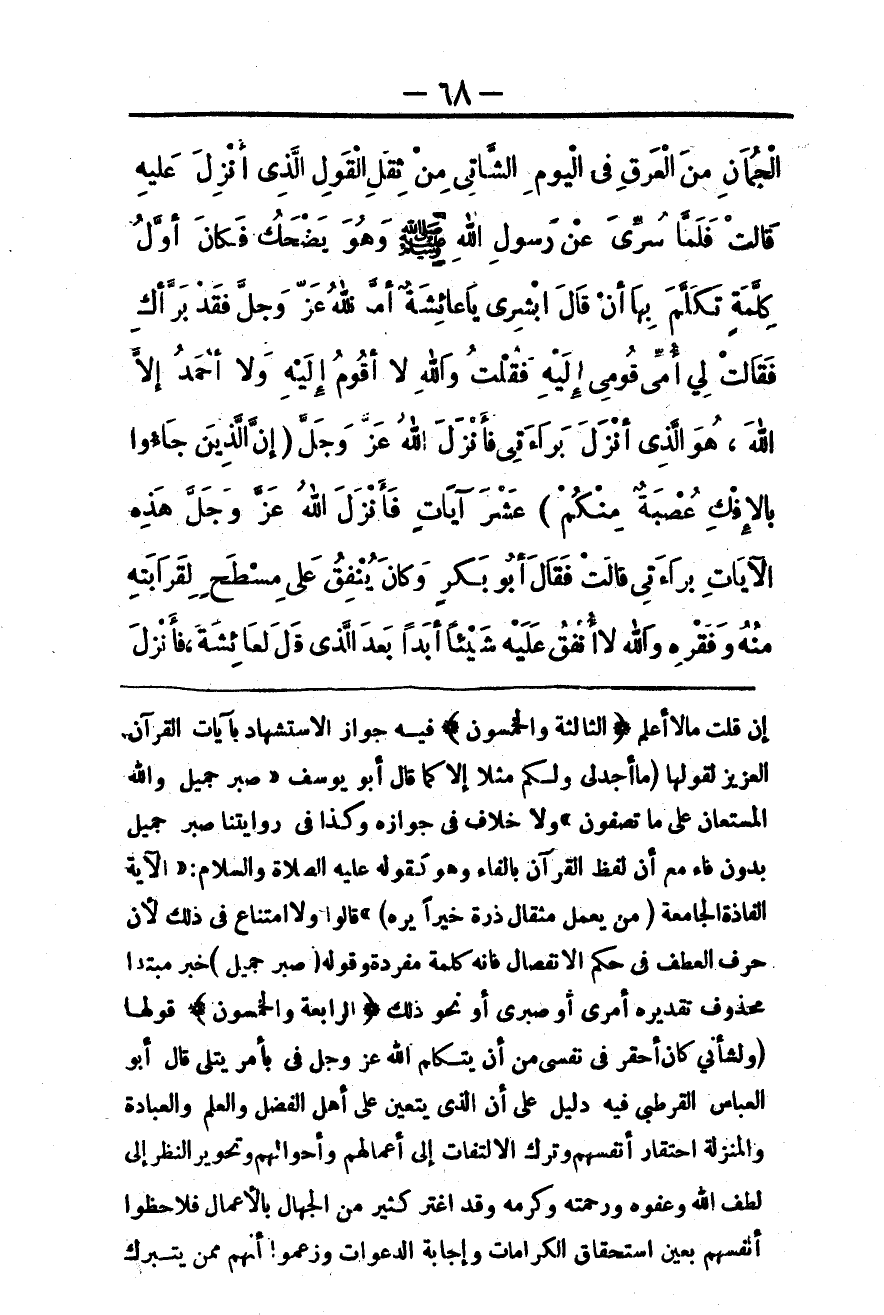 — ٦٨ —
الْجُمَانِ مِنَ الْعَرَقِ فِى الْيَومِ الشَّاتِى مِنْ ثِقَلِ الْقَولِ الَّذِى أُنْزِلَ عَلَيهِ
قَالَتْ فَلَمَّا سُرِّىَ عَنْ رَسولِ اللهِ ﷺ وَهُوَ يَضْحَكُ فَكانَ أَوَّلُ
كِلَّمَةٍ تَكَلَّمَ بِهَا أَنْ قَالَ ابْشِرِى يَاعائِشَةُ أَمَّ اللهُ عَزَّ وَجلَّ فَقَدْ بَرَّأَكِ
فَقَالَتْ لِي أُمِّى قُومِى إِلَيْهِ فَقُلْتُ وَاللهِ لا أَقُومُ إِلَيْهِ وَلا أَحْمَدُ إِلاَّ
اللهَ ، هُوَ الَّذِى أَنْزَلَ بَرَاءَتِى فأَنْزَلَ اللهُ عَزَّ وَجَلَّ (إنَّ الَّذِينَ جَاؤوا
بالإِفْكِ عُصْبَةٌ مِنْكُمْ ) عَشْرَ آيَاتٍ فَأَنْزَلَ اللهُ عَزَّ وَجَلَّ هَذِه
الآيَاتِ بَراءَتِى قالَتْ فَقَالَ أَبُو بَكرٍ وَكانَ يُنْفِقُ عَلَى مِسْطَحٍ لِقَرَابَتِهِ
مِنْهُ وَفَقْرِهِ واللهِ لا أُنْفِقُ عَلَيْهِ شَيْئاً أَبَداً بَعدَ الَّذِى قَلَ لعَائِشَةَ ، فأَنْزلَ
إن قلت مالا أعلم ﴿ الثالثة والخمسون ﴾ فيه جواز الاستشهاد بآيات القرآن
العزيز لقولها (ما أجدلى ولكم مثلا إلا كما قال أبو يوسف « صبر جميل والله
المستعان على ما تصفون » ولا خلاف فى جوازه وكذا فى روايتنا صبر جميل
بدون فاء مع أن لفظ القرآن بالفاء وهو كقوله عليه الصلاة والسلام :« الآية
الفاذة الجامعة ( من يعمل مثقال ذرة خيراً يره) » قالوا ولا امتناع فى ذلك لأن
حرف العطف فى حكم الانفصال فانه كلمة مفردة وقوله ( صبر جميل ) خبر مبتدا
محذوف تقديره أمرى أو صبرى أو نحو ذلك ﴿ الرابعة والخمسون ﴾ قولها
(ولشأني كان أحقر فى نفسى من أن يتكلم الله عز وجل فى بأمر يتلى قال أبو
العباس القرطبي فيه دليل على أن الذى يتعين على أهل الفضل والعلم والعبادة
والمنزلة احتقار أنفسهم وترك الالتفات إلى أعمالهم وأحوالهم وتحوير النظر إلى
لطف الله وعفوه ورحمته وكرمه وقد اغتر كثير من الجهال بالأعمال فلاحظوا
أنفسهم بعين استحقاق الكرامات وإجابة الدعوات وزعموا أنهم ممن يتبرك